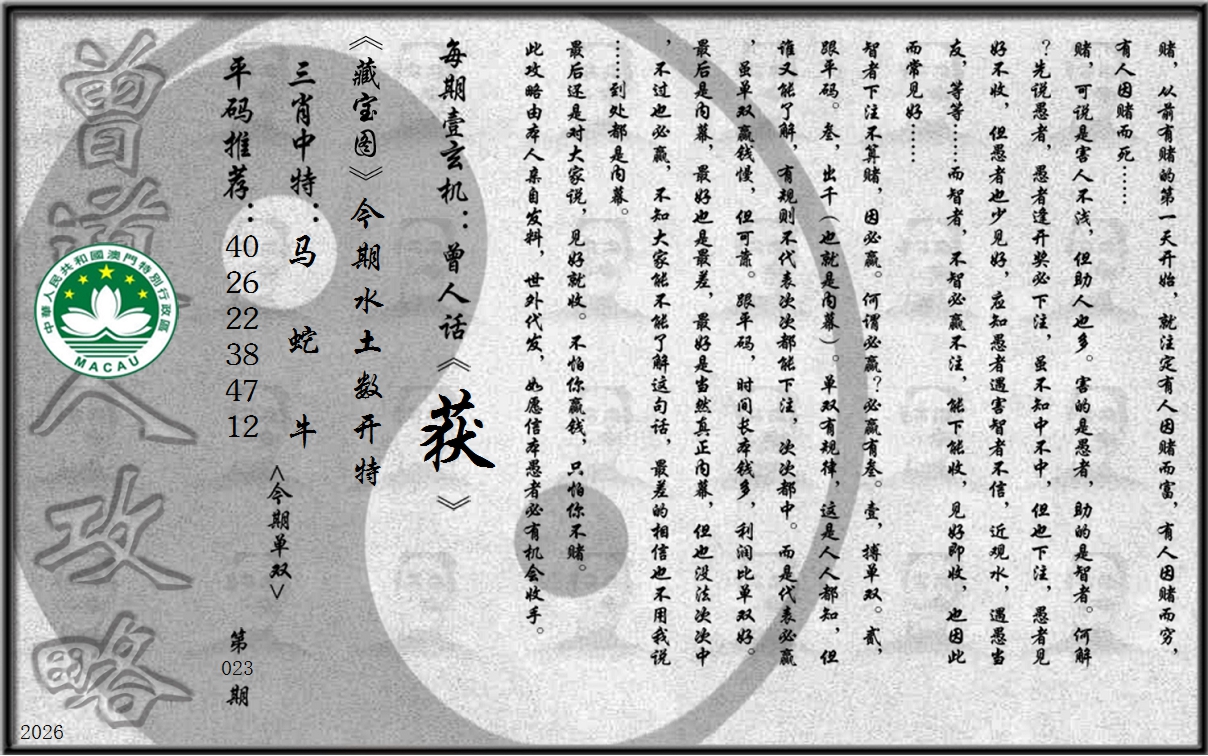 赌，从前有赌的第一天开始，就注定有人因赌而富，有人因赌而穷，
有人因赌而死……
赌，可说是害人不浅，但助人也多。害的是愚者，助的是智者。何解
？先说愚者，愚者逢开奖必下注，虽不知中不中，但也下注，愚者见
好不收，但愚者也少见好，应知愚者遇害智者不信，近观水，遇愚当
友，等等……而智者，不智必赢不注，能下能收，见好即收，也因此
而常见好……
智者下注不算赌，因必赢。何谓必赢？必赢有叁。壹，搏单双。贰，
跟平码。叁，出千（也就是内幕）。单双有规律，这是人人都知，但
谁又能了解，有规则不代表次次都能下注，次次都中。而是代表必赢
，虽单双赢钱慢，但可靠。跟平码，时间长本钱多，利润比单双好。
最后是内幕，最好也是最差，最好是当然真正内幕，但也没法次次中
，不过也必赢，不知大家能不能了解这句话，最差的相信也不用我说
……到处都是内幕。
最后还是对大家说，见好就收。不怕你赢钱，只怕你不赌。
此攻略由本人亲自发料，世外代发，如愿信本愚者必有机会收手。
每期壹玄机：曾人话《获》
《藏宝图》今期水土数开特
三肖中特：马 蛇 牛
<今期单双>
平码推荐：40 26 22 38 47 12
第023期
曾道人攻略
中華人民共和國澳門特別行政區
MACAU
2026